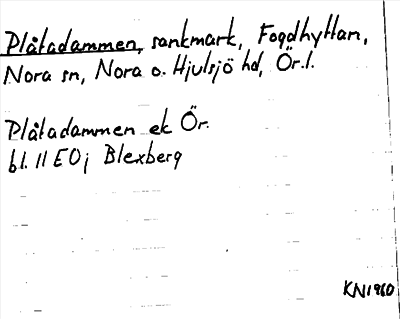 Plåtadammen, sankmark, Fogdhyttan,
Nora sn, Nora o. Hjulsjö hd, Ör.l.
Plåtadammen ek Ör.
bl. 11 EOj Blexberg
KN1960